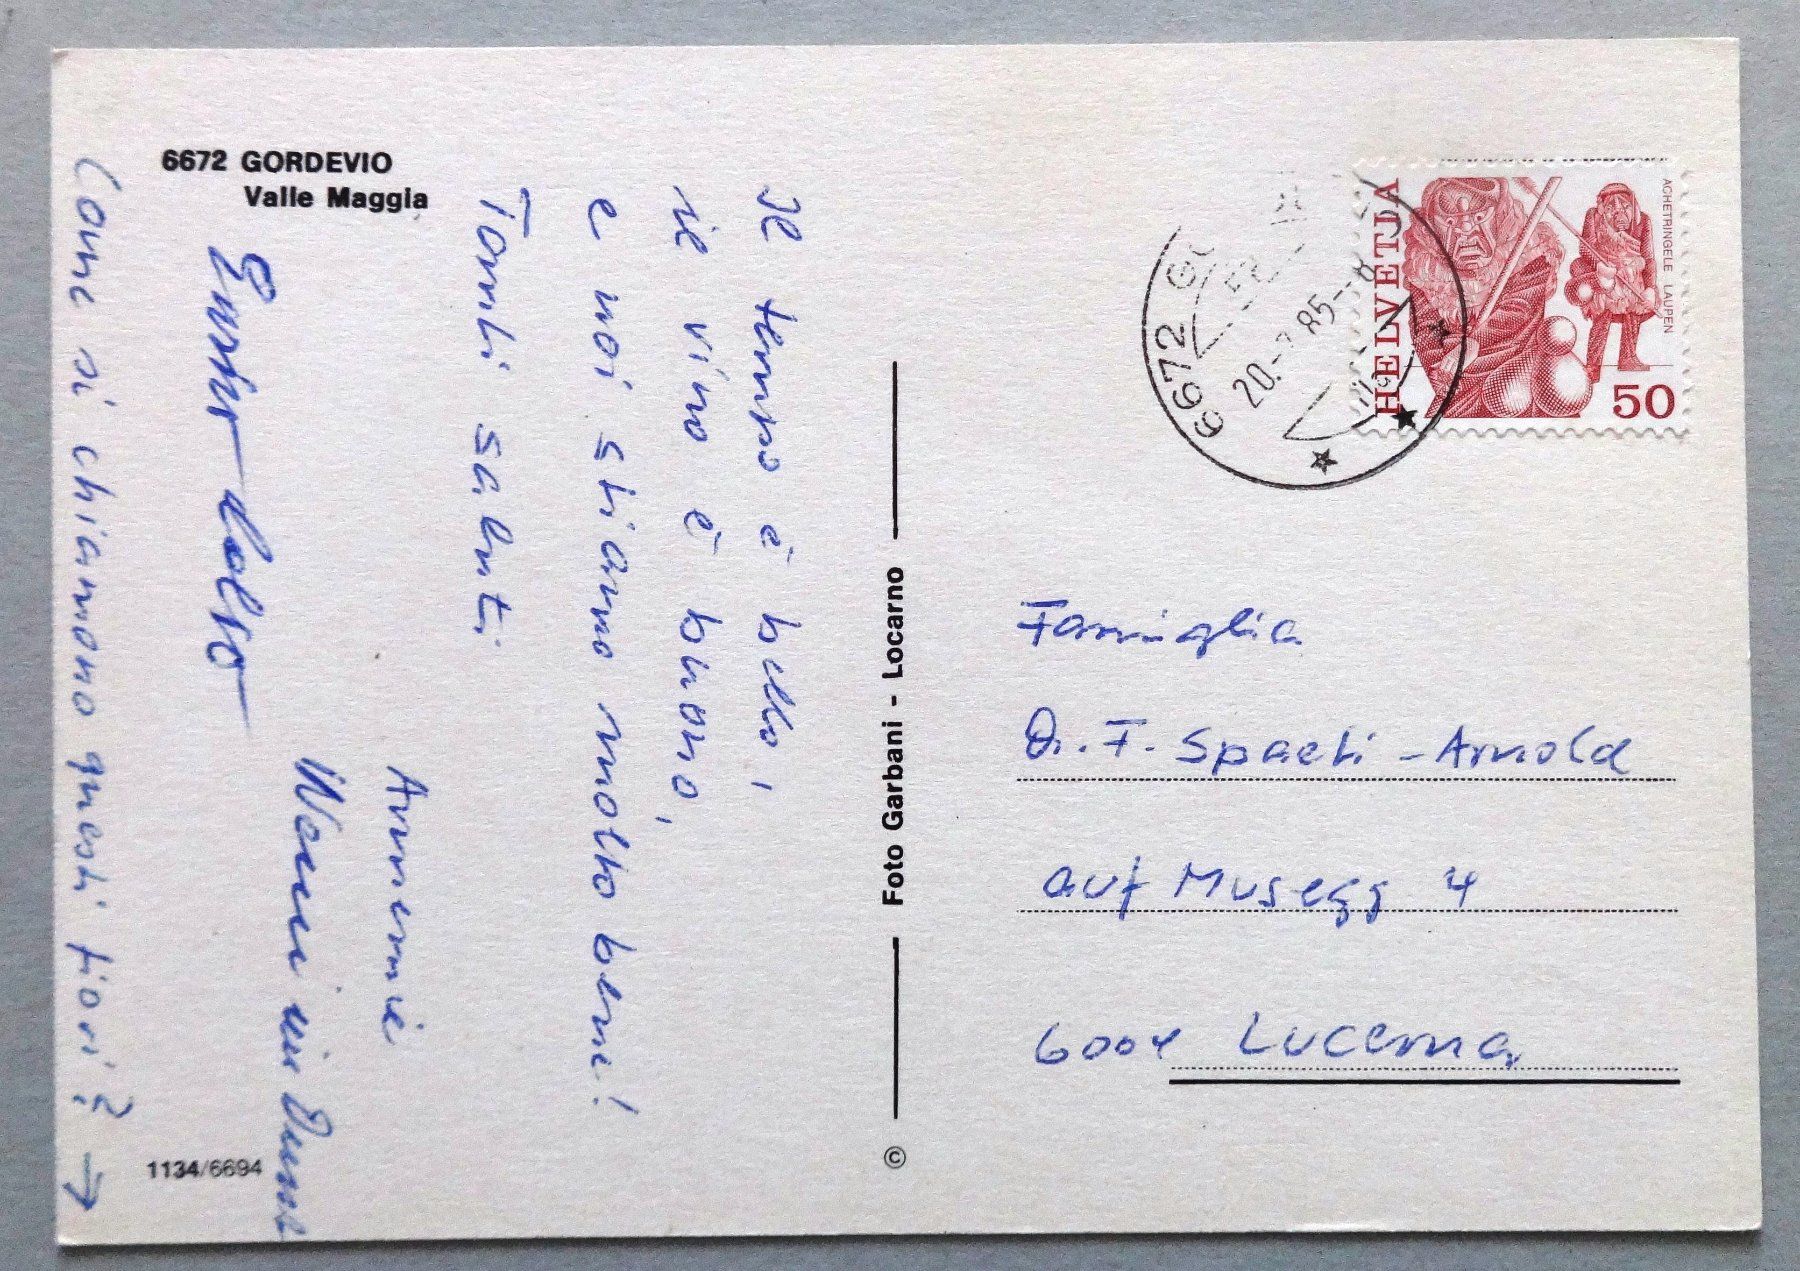 6672 GORDEVIO
Valle Maggia
Il tempo è bello,
il vino è buono,
e noi stiamo molto bene!
Tanti saluti
Annemie
Come si chiamano questi fiori? →
1134/6694
Foto Garbani - Locarno
©
HELVETIA
ACHETRINGELE LAUPEN
50
6672
20.-
85-
Famiglia
F. Spaeti-Arnold
auf Musegg 4
6004 Lucerna